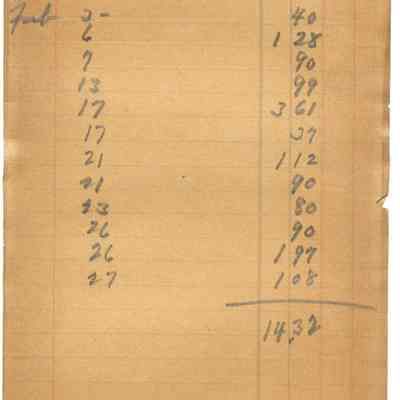 Feb 40
6 1 28
7 90
13 99
17 3 61
17 37
21 1 12
21 90
23 80
26 90
26 1 97
27 1 08
14.32